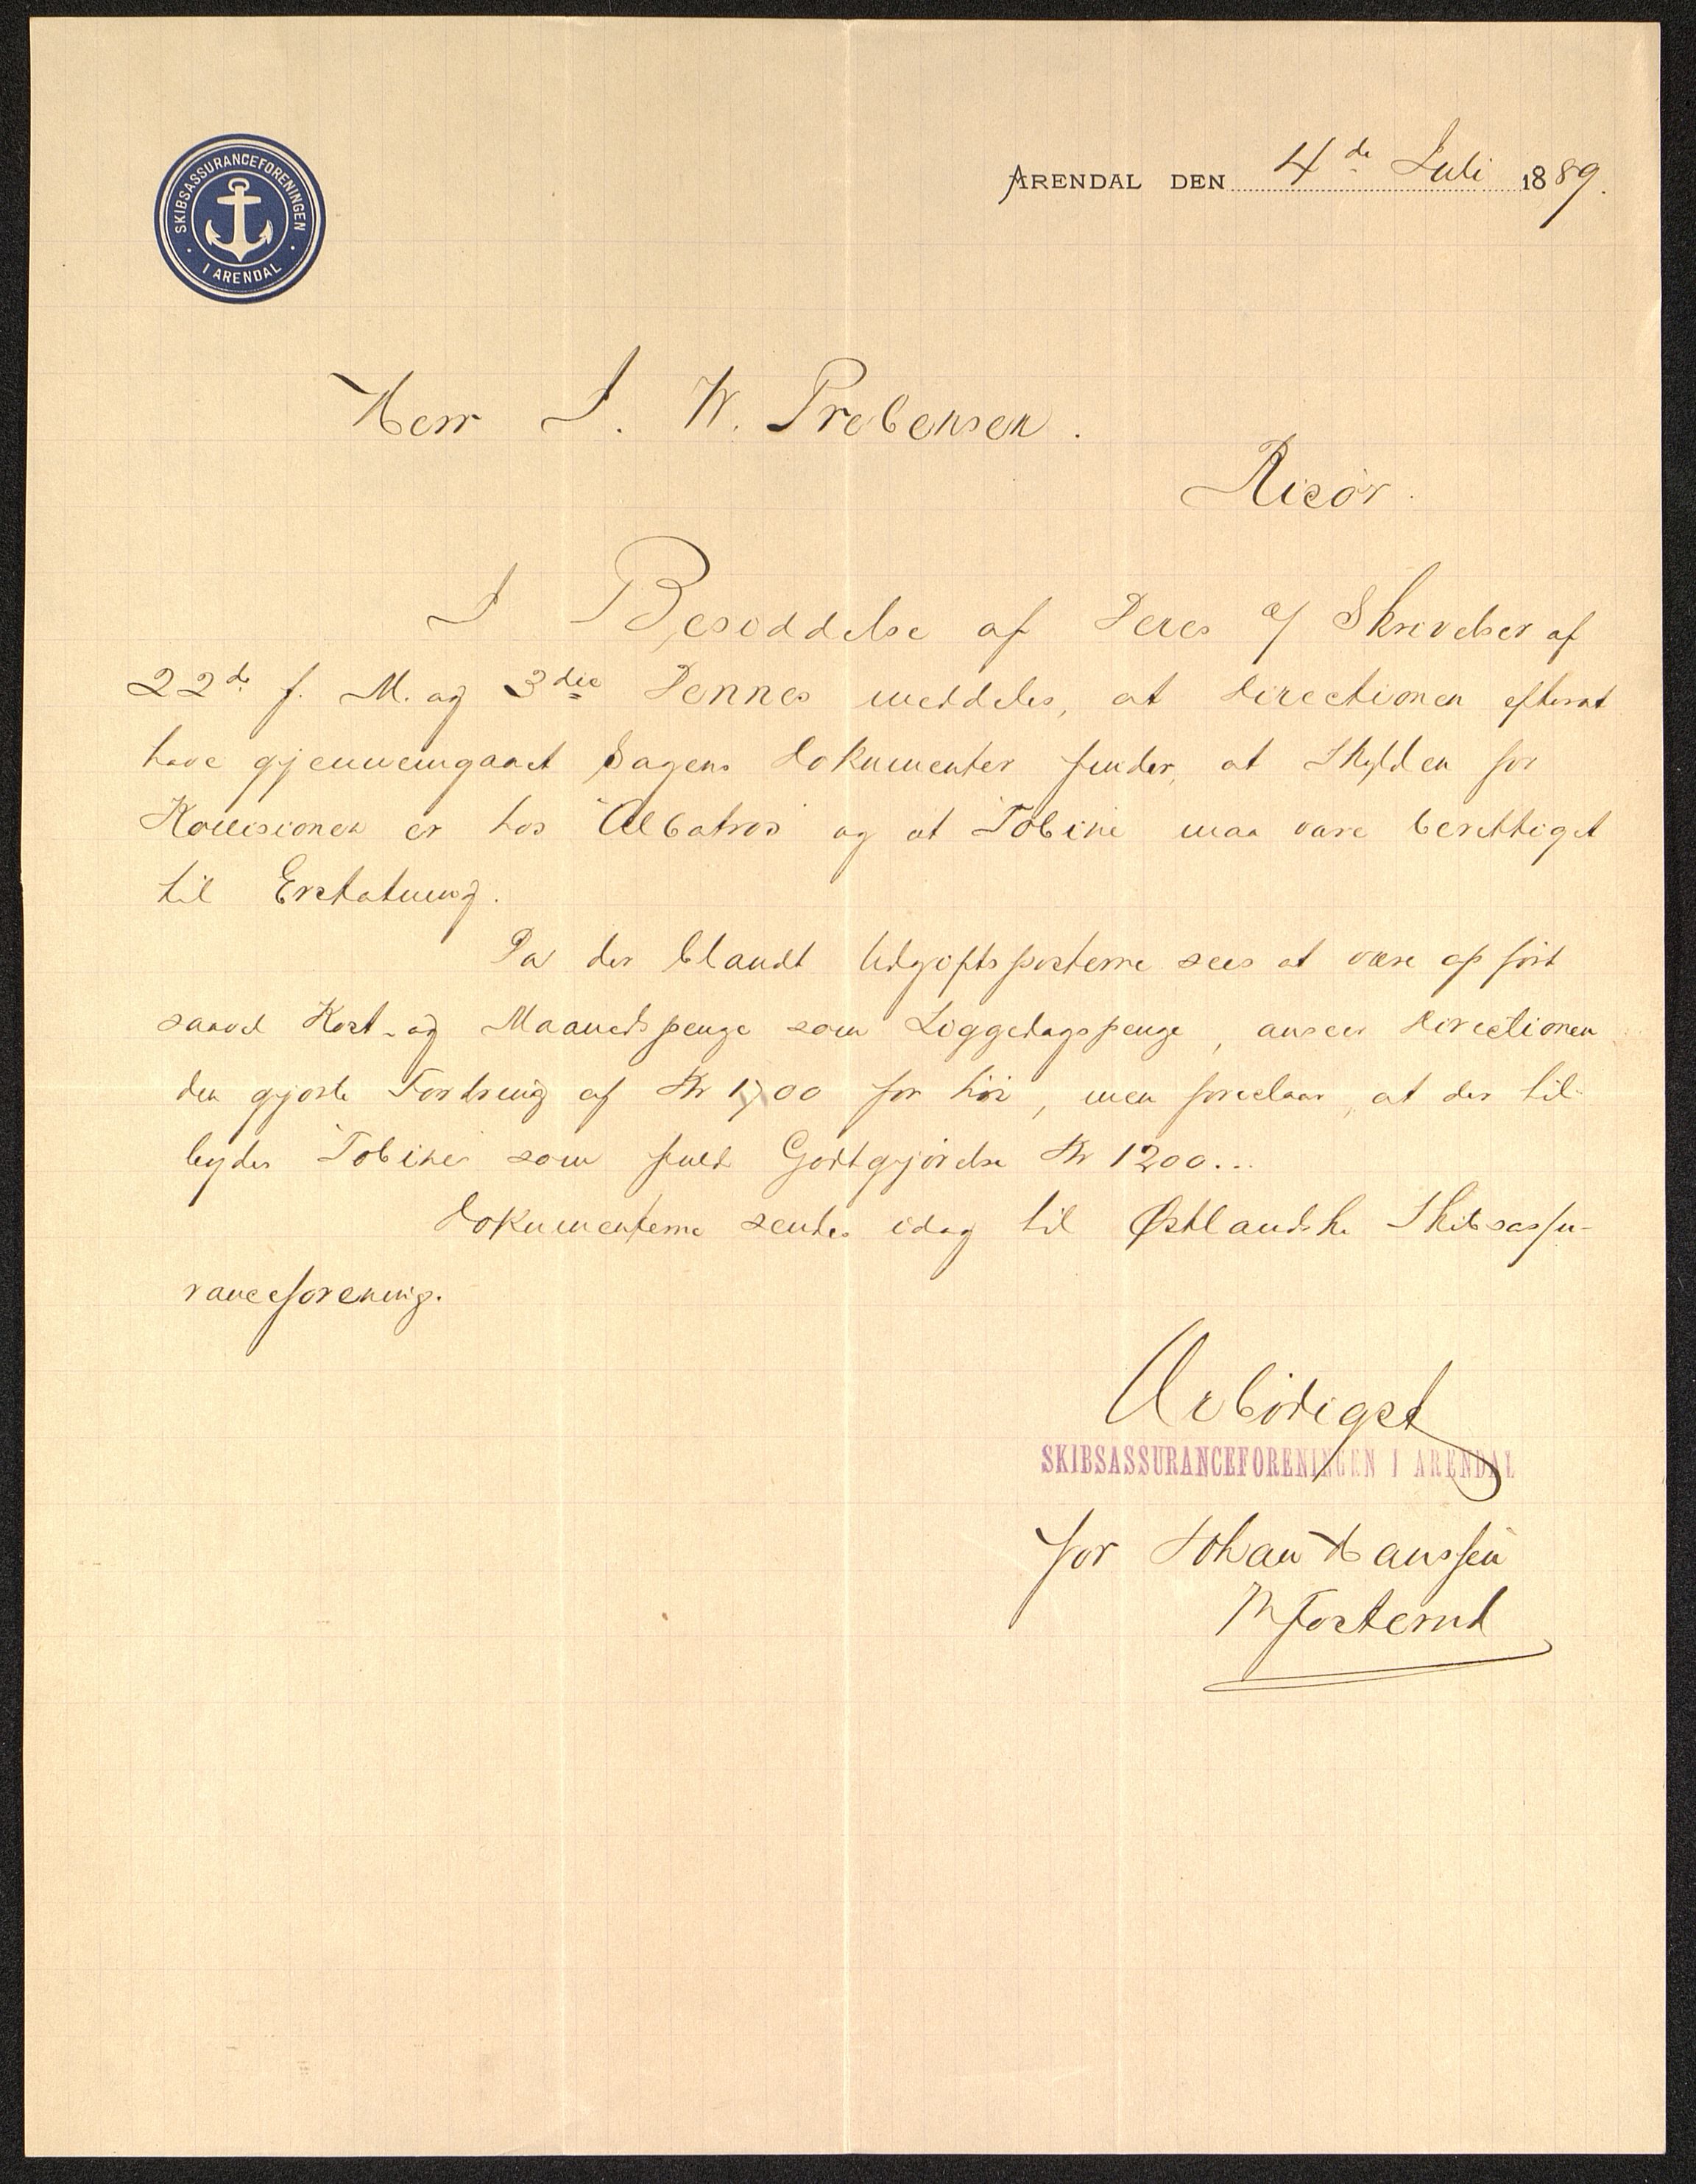 SKIBSASSURANCEFORENINGEN
I ARENDAL
ARENDAL DEN 4de Juli 1889.
Herr J. W. Prebensen.
Risör.
I Besiddelse af Deres Skrivelser af
22de f. M. og 3die Dennes meddeles, at Directionen efterat
have gjennemgaaet Sagens Dokumenter finder, at Skylden for
Kollisionen er hos "Albatros" og at "Tobine" maa være berettiget
til Erstatning.
Da der blandt Udgiftsposterne sees at være opfört
saavel Kost- og Maanedspenge som Liggedagspenge, anseer Directionen
den gjorte Fordring af Kr 1700 for höi, men foreslaar, at der til-
bydes "Tobine" som fuld Godtgjörelse Kr 1200...
Dokumenterne sendes idag til Østlandske Skibsassu-
ranceforening.
Ærbödigst
SKIBSASSURANCEFORENINGEN I ARENDAL
for Johan Hanssen